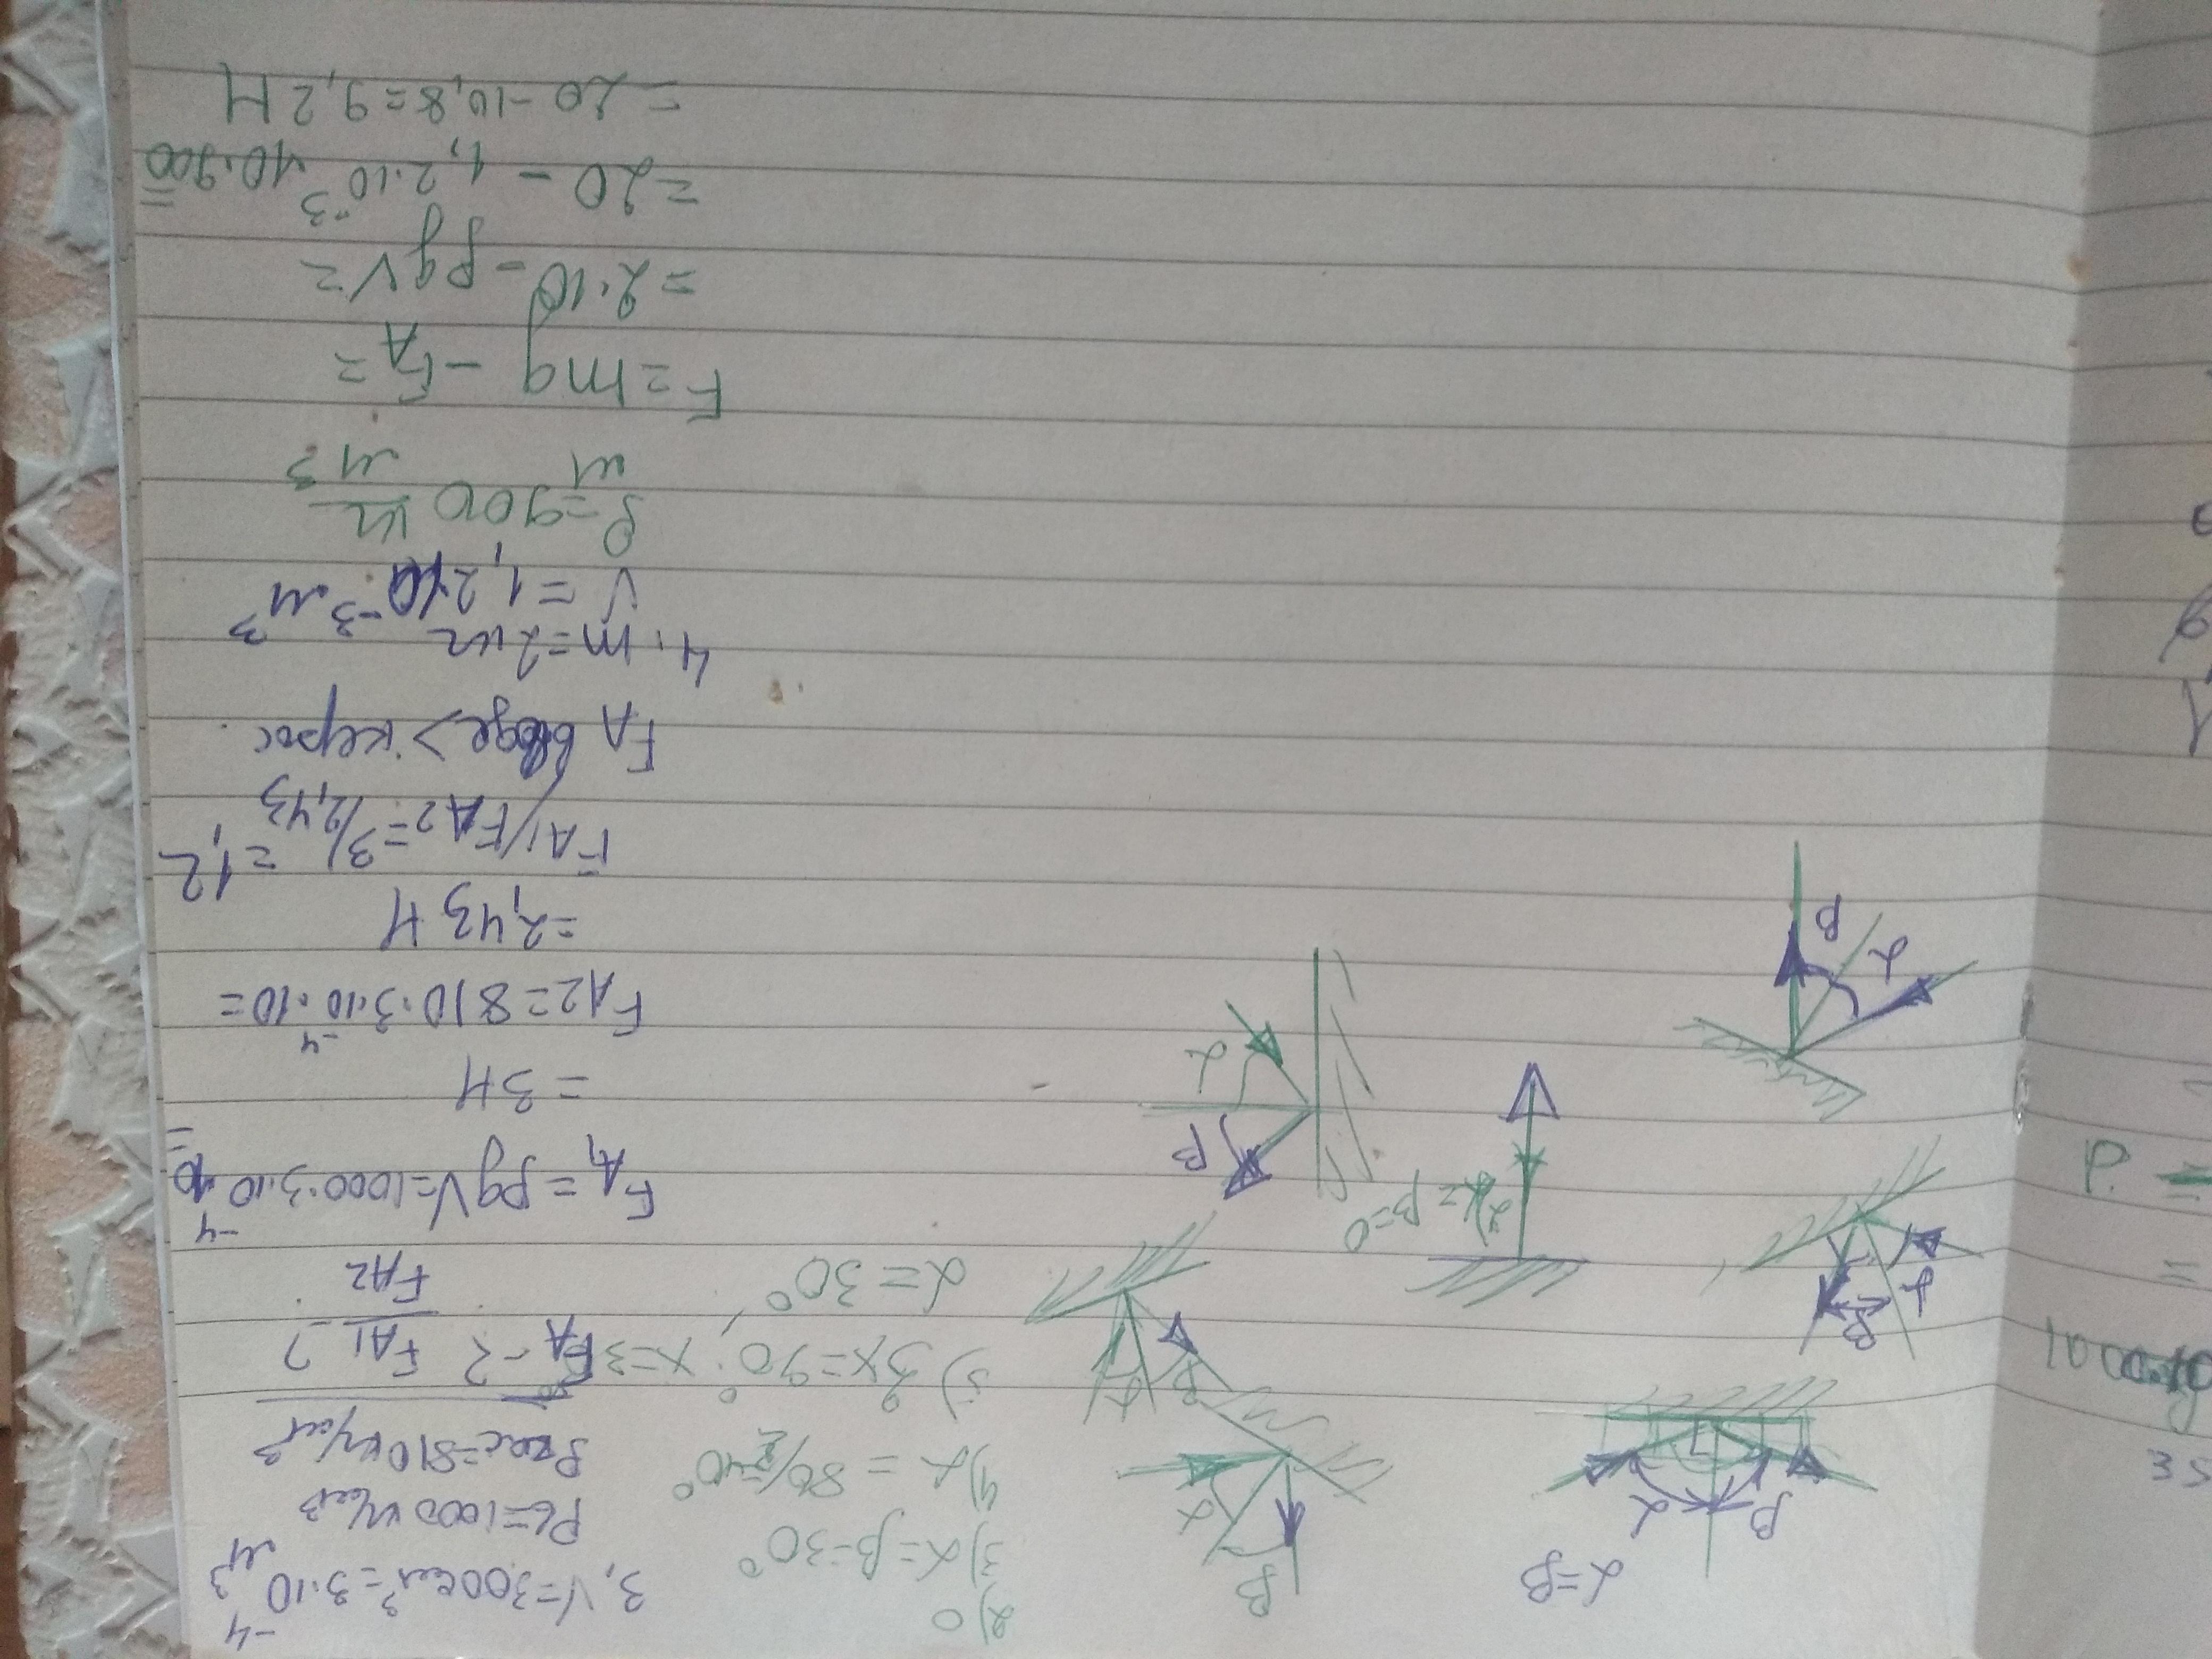 α=β
α
β
β
α
α
β
α
β
2) α=β=0
α
β
α
β
2) 0
3) α=β=30°
4) α = 80/2=40°
5) 3x=90°; x=30°
α=30°
3, V=300см³=3·10⁻⁴ м³
ρв=1000 кг/м³
ρкер=810 кг/м³
FA-? FA1/FA2 - ?
FA1 = ρgV=1000·3·10⁻⁴·10=
= 3 Н
FA2=810·3·10⁻⁴·10=
=2,43 Н
FA1/FA2=3/2,43 =1,2
FA воде > керос.
4. m=2кг
V=1,2·10⁻³ м³
ρ=900 кг/м³
F=mg - FA =
=2·10 - ρgV=
=20 - 1,2·10⁻³·10·900=
=20-10,8=9,2 Н